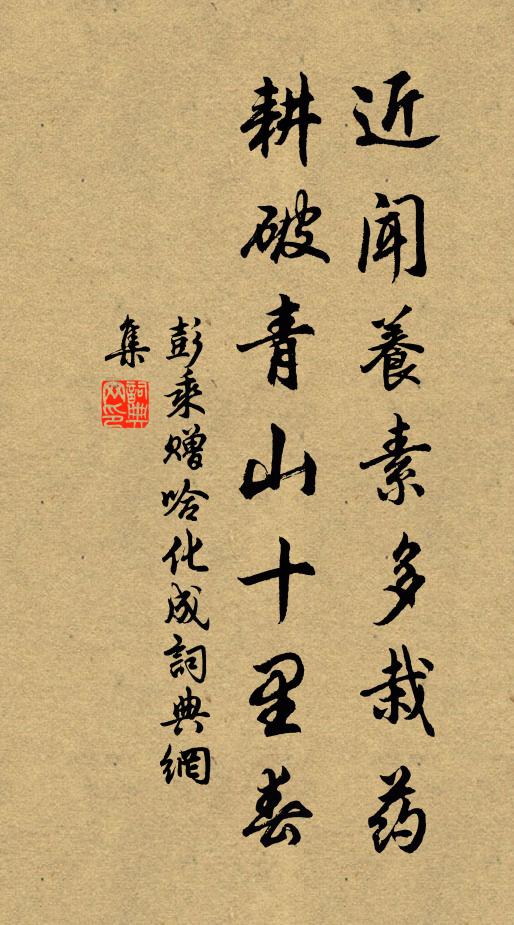 近闻養素多栽药
耕破青山十里春
彭乘赠哈化成詞典網
集
詞典
网印